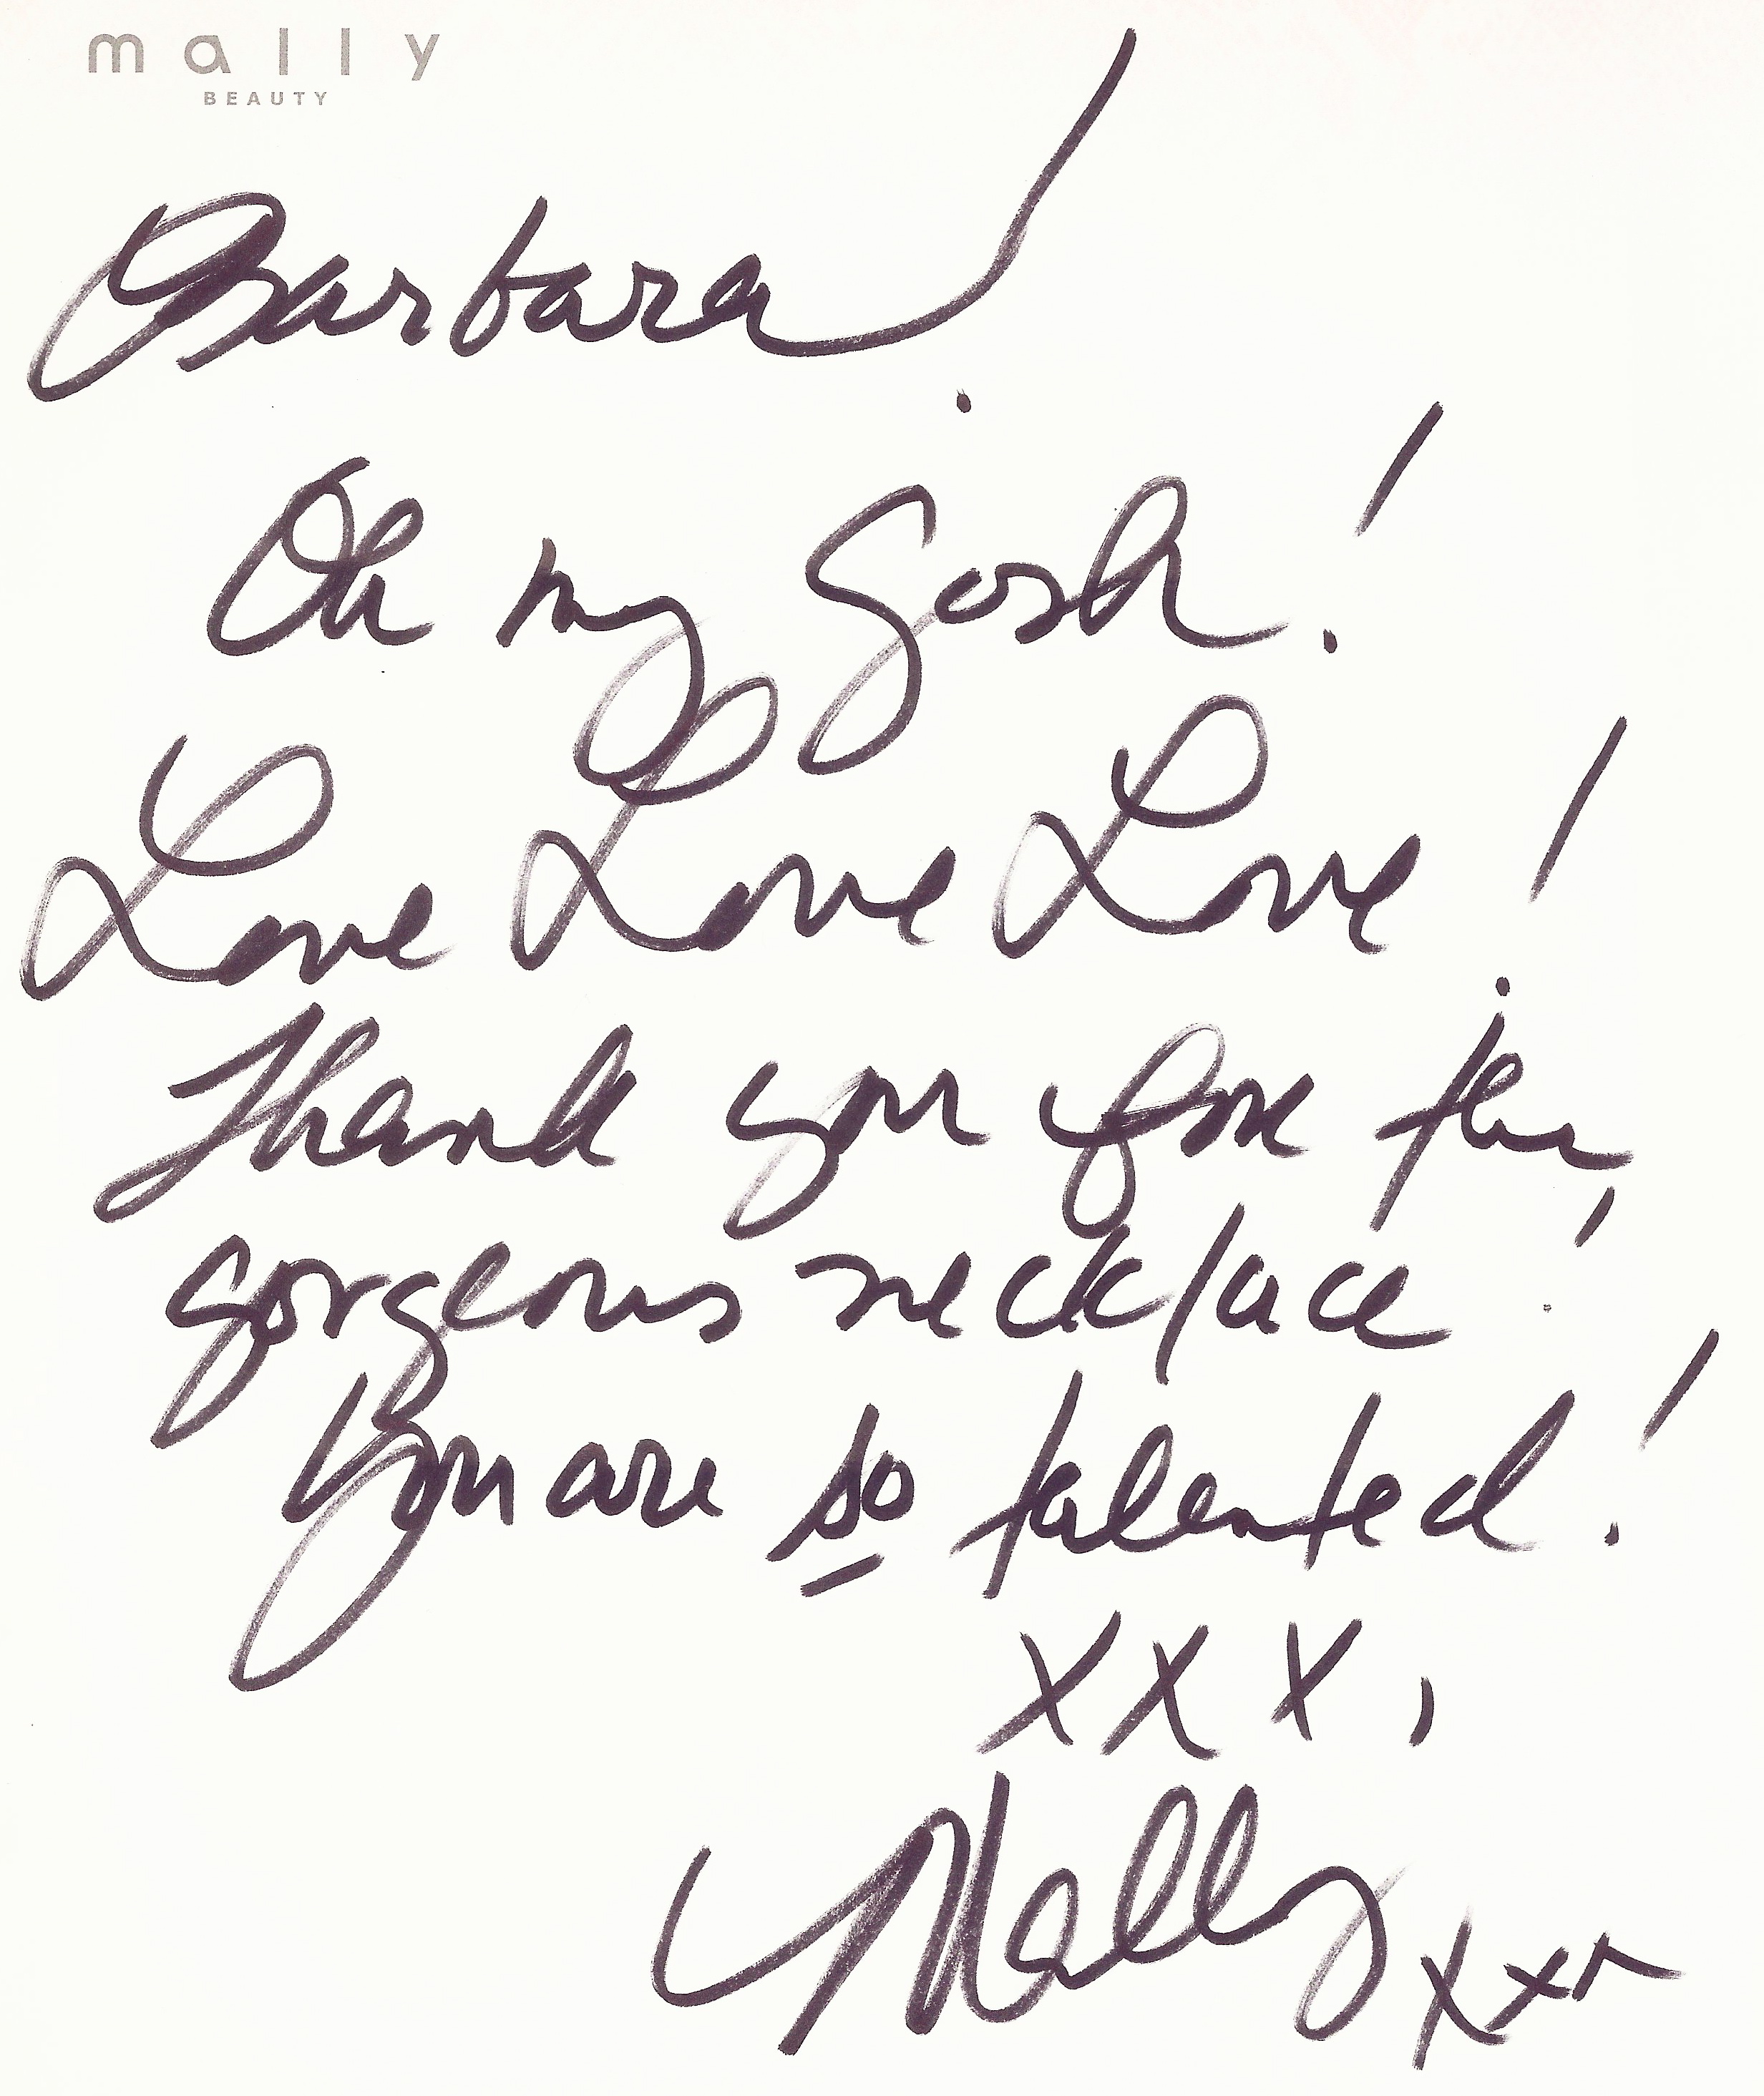 mally
BEAUTY
Barbara!
Oh my Gosh!
Love Love Love!
Thank you for the
gorgeous necklace!
You are so talented!
xxx,
Mally xxx